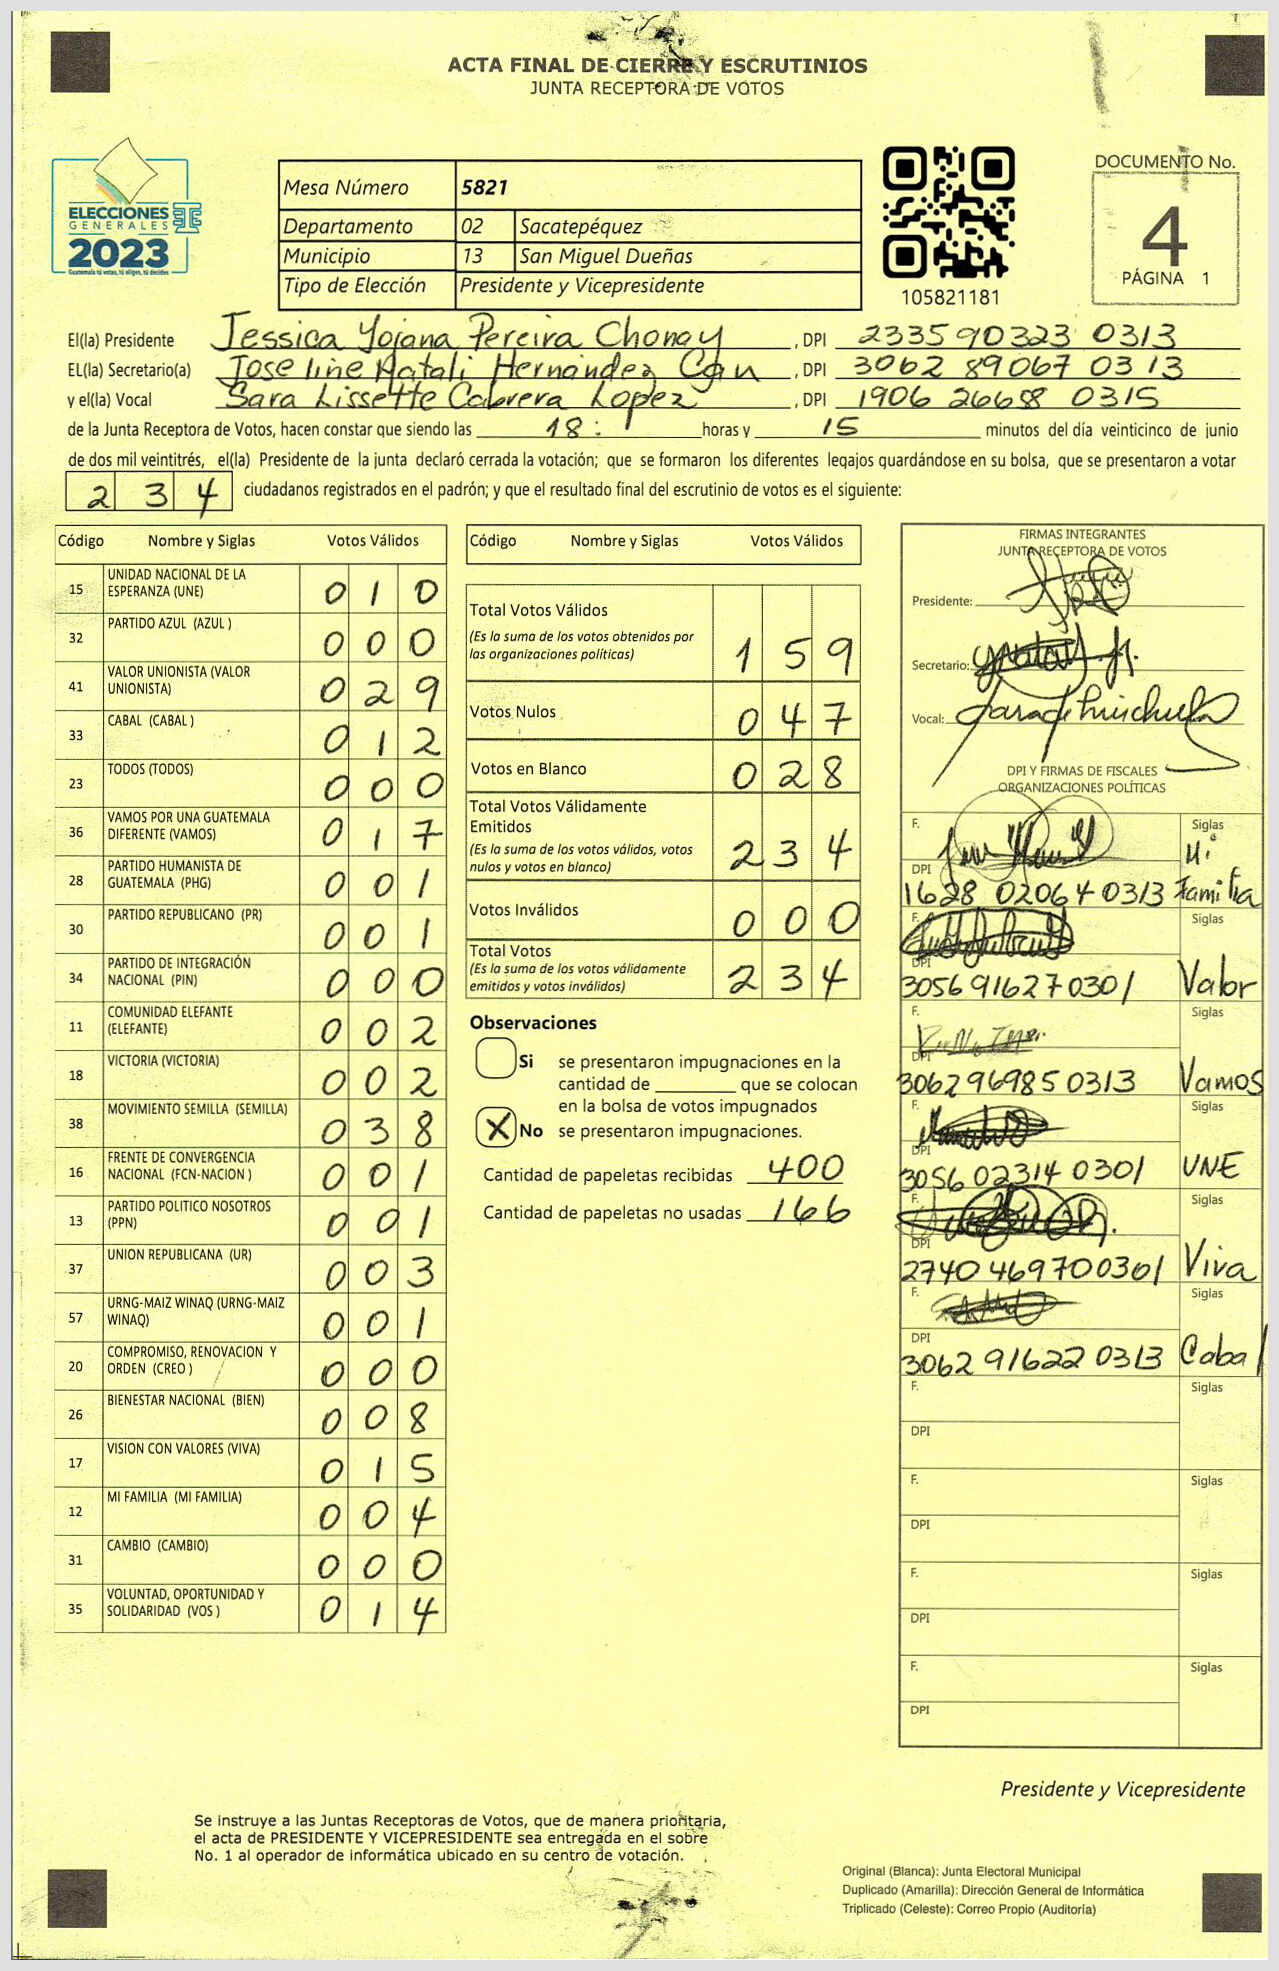 ACTA FINAL DE CIERRE Y ESCRUTINIOS
JUNTA RECEPTORA DE VOTOS
ELECCIONES
GENERALES
2023
Guatemala tú votas, tú eliges, tú decides
Mesa Número 5821
Departamento 02 Sacatepéquez
Municipio 13 San Miguel Dueñas
Tipo de Elección Presidente y Vicepresidente
105821181
DOCUMENTO No.
4
PÁGINA 1
El(la) Presidente Jessica Yojana Pereira Chonay, DPI 2335 90323 0313
EL(la) Secretario(a) Joseline Natali Hernández Can, DPI 3062 89067 0313
y el(la) Vocal Sara Lissette Cabrera Lopez, DPI 1906 26658 0315
de la Junta Receptora de Votos, hacen constar que siendo las 18: horas y 15 minutos del día veinticinco de junio
de dos mil veintitrés, el(la) Presidente de la junta declaró cerrada la votación; que se formaron los diferentes legajos guardándose en su bolsa, que se presentaron a votar
234 ciudadanos registrados en el padrón; y que el resultado final del escrutinio de votos es el siguiente:
Código Nombre y Siglas Votos Válidos
15 UNIDAD NACIONAL DE LA ESPERANZA (UNE) 010
32 PARTIDO AZUL (AZUL ) 000
41 VALOR UNIONISTA (VALOR UNIONISTA) 029
33 CABAL (CABAL ) 012
23 TODOS (TODOS) 000
36 VAMOS POR UNA GUATEMALA DIFERENTE (VAMOS) 017
28 PARTIDO HUMANISTA DE GUATEMALA (PHG) 001
30 PARTIDO REPUBLICANO (PR) 001
34 PARTIDO DE INTEGRACIÓN NACIONAL (PIN) 000
11 COMUNIDAD ELEFANTE (ELEFANTE) 002
18 VICTORIA (VICTORIA) 002
38 MOVIMIENTO SEMILLA (SEMILLA) 038
16 FRENTE DE CONVERGENCIA NACIONAL (FCN-NACION ) 001
13 PARTIDO POLITICO NOSOTROS (PPN) 001
37 UNION REPUBLICANA (UR) 003
57 URNG-MAIZ WINAQ (URNG-MAIZ WINAQ) 001
20 COMPROMISO, RENOVACION Y ORDEN (CREO ) 000
26 BIENESTAR NACIONAL (BIEN) 008
17 VISION CON VALORES (VIVA) 015
12 MI FAMILIA (MI FAMILIA) 004
31 CAMBIO (CAMBIO) 000
35 VOLUNTAD, OPORTUNIDAD Y SOLIDARIDAD (VOS ) 014
Código Nombre y Siglas Votos Válidos
Total Votos Válidos 159
(Es la suma de los votos obtenidos por
las organizaciones políticas)
Votos Nulos 047
Votos en Blanco 028
Total Votos Válidamente
Emitidos 234
(Es la suma de los votos válidos, votos
nulos y votos en blanco)
Votos Inválidos 000
Total Votos 234
(Es la suma de los votos válidamente
emitidos y votos inválidos)
Observaciones
Si se presentaron impugnaciones en la
cantidad de ________ que se colocan
en la bolsa de votos impugnados
X No se presentaron impugnaciones.
Cantidad de papeletas recibidas 400
Cantidad de papeletas no usadas 166
FIRMAS INTEGRANTES
JUNTA RECEPTORA DE VOTOS
Presidente:
Secretario:
Vocal:
DPI Y FIRMAS DE FISCALES
ORGANIZACIONES POLÍTICAS
F. Siglas
DPI 1628 02064 0313 Mi Familia
F. Siglas
DPI 3056 91627 0301 Valor
F. Siglas
DPI 3062 96985 0313 Vamos
F. Siglas
DPI 3056 02314 0301 UNE
F. Siglas
DPI 2740 46970 0301 Viva
F. Siglas
DPI 3062 91622 0313 Cabal
F. Siglas
DPI
F. Siglas
DPI
F. Siglas
DPI
F. Siglas
DPI
Presidente y Vicepresidente
Se instruye a las Juntas Receptoras de Votos, que de manera prioritaria,
el acta de PRESIDENTE Y VICEPRESIDENTE sea entregada en el sobre
No. 1 al operador de informática ubicado en su centro de votación.
Original (Blanca): Junta Electoral Municipal
Duplicado (Amarilla): Dirección General de Informática
Triplicado (Celeste): Correo Propio (Auditoría)